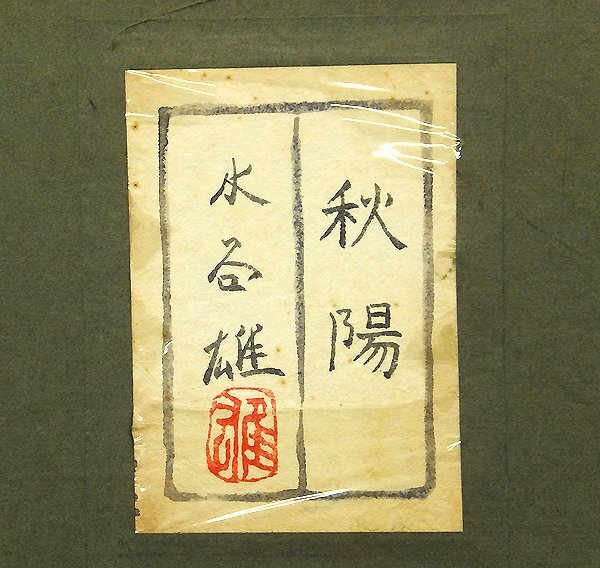 秋陽
水谷雄
雄